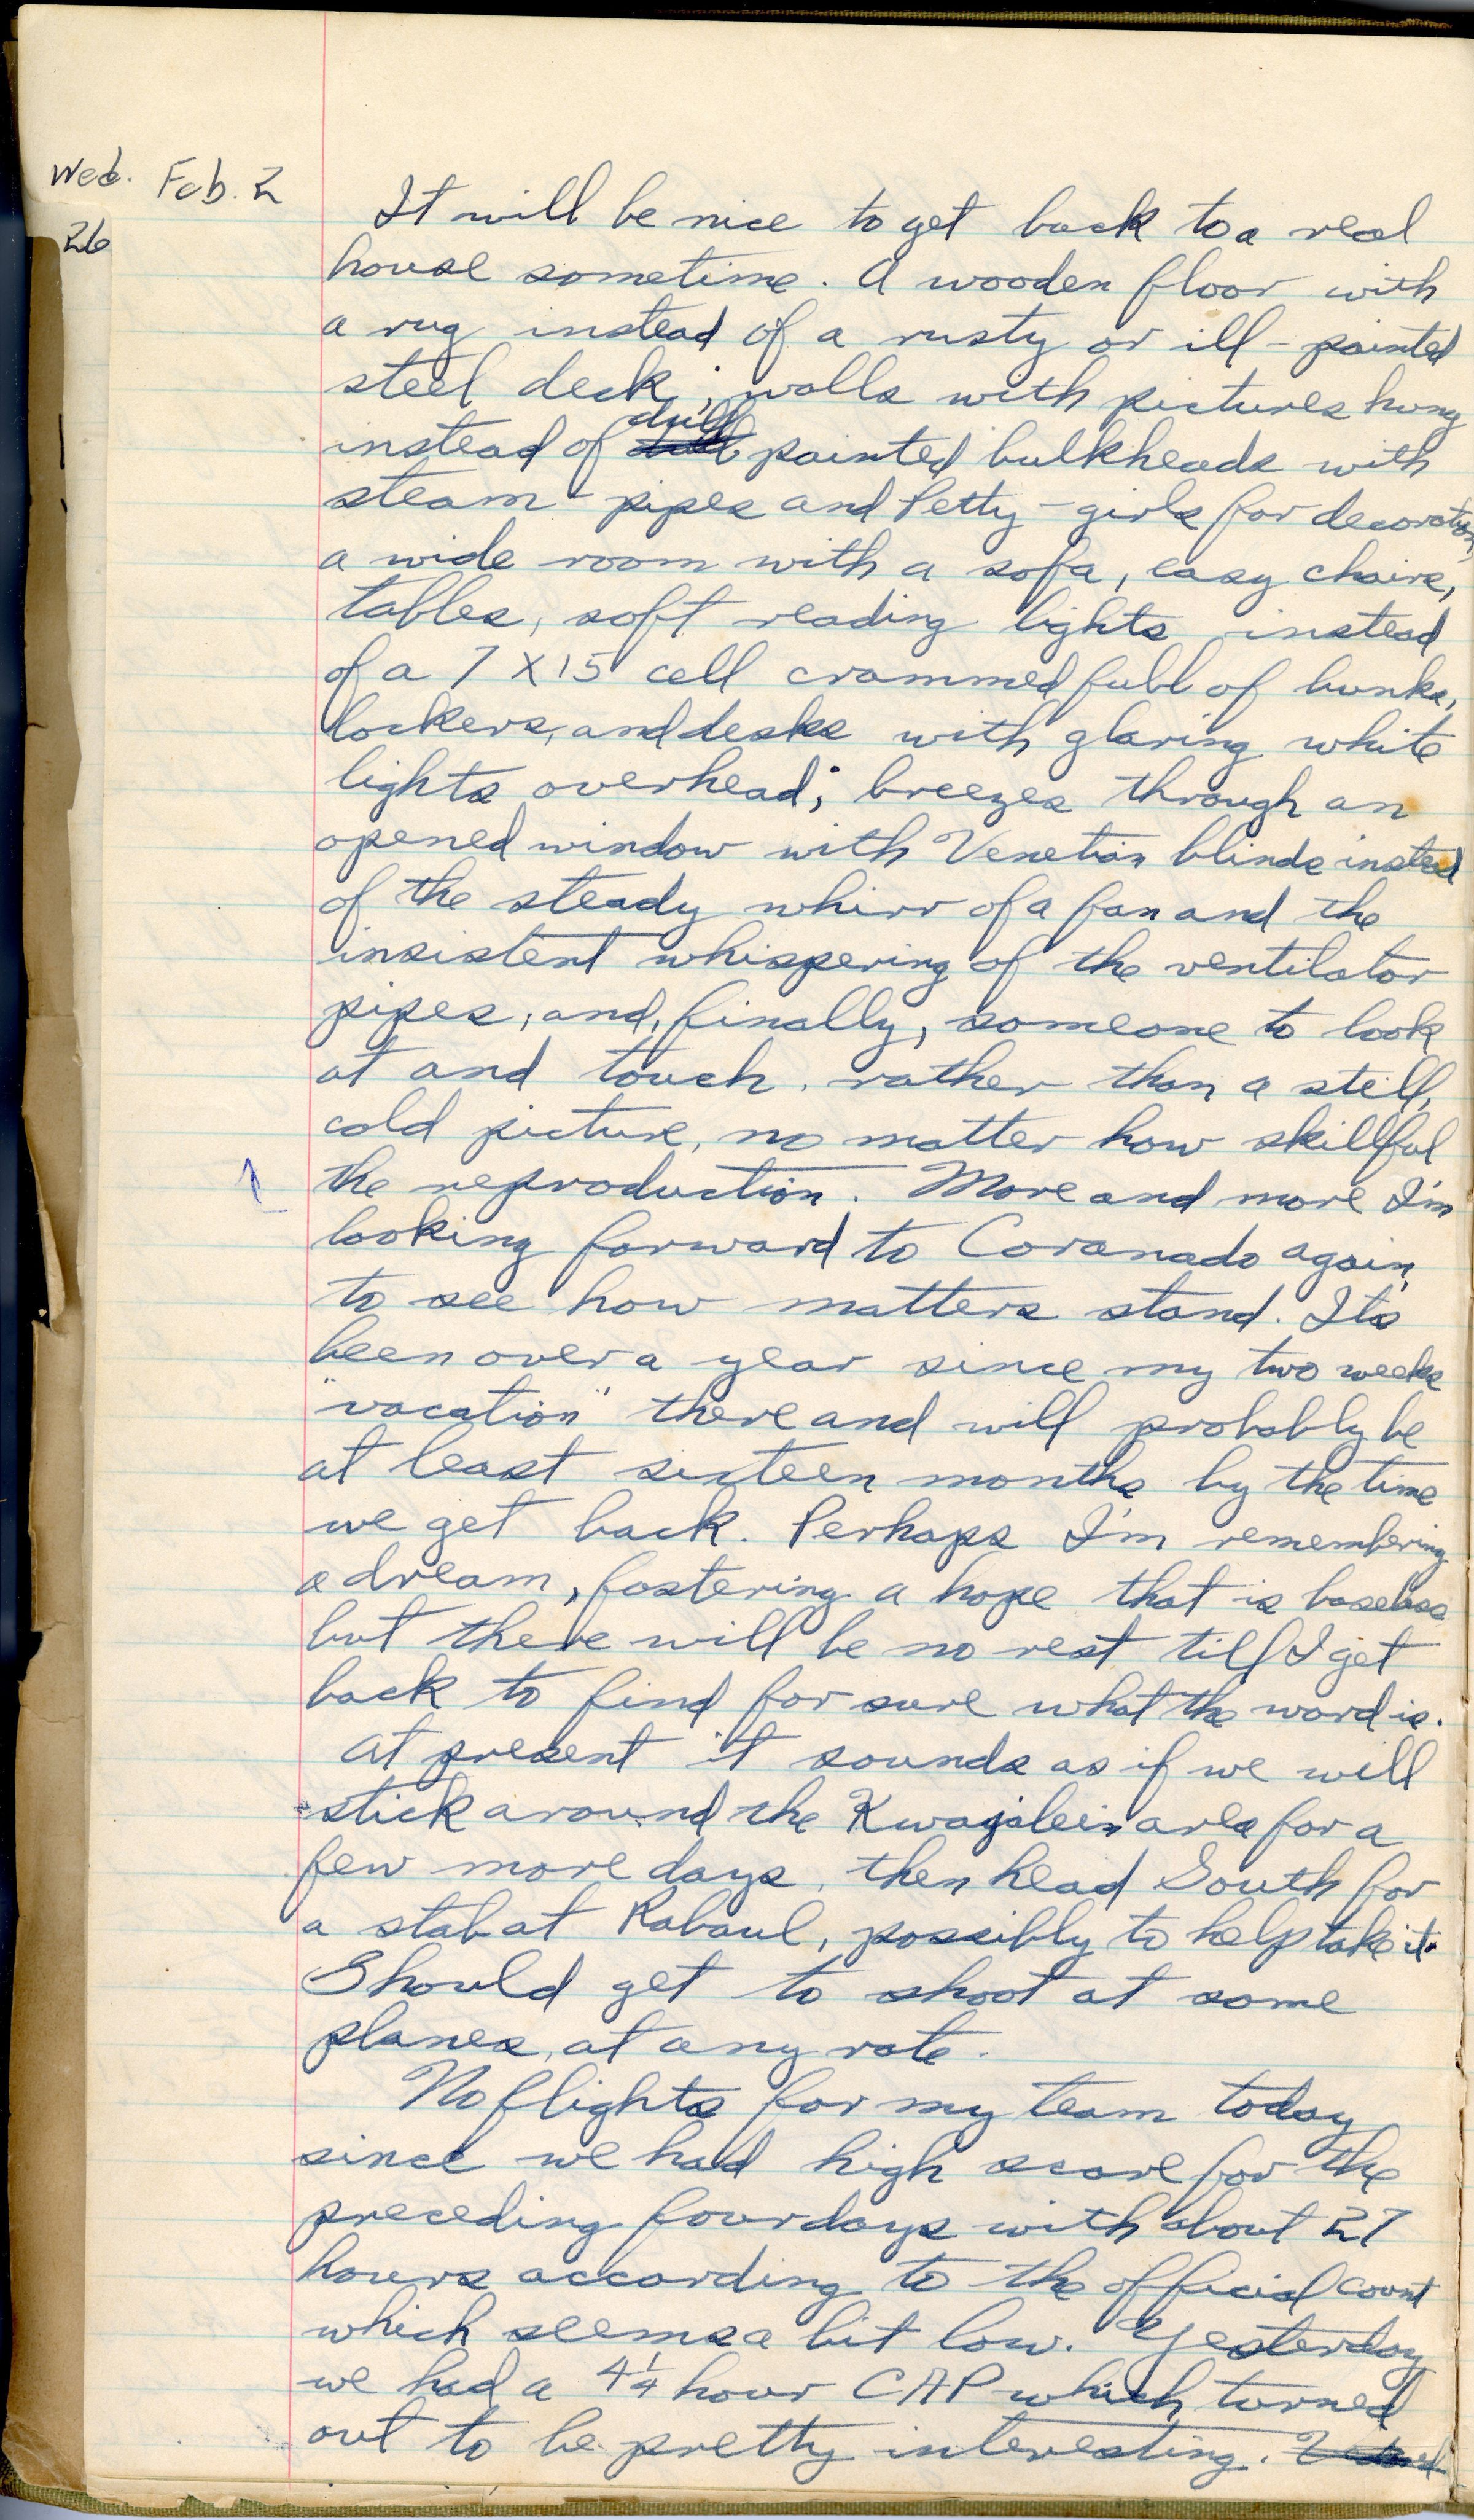 Wed. Feb. 2
26
It will be nice to get back to a real
house sometime. A wooden floor with
a rug instead of a rusty or ill-painted
steel deck; walls with pictures hung
instead of dull painted bulkheads with
steam-pipes and Petty-girls for decoration,
a wide room with a sofa, easy chairs,
tables, soft reading lights instead
of a 7 X 15 cell crammed full of bunks,
lockers, and desks with glaring white
lights overhead; breezes through an
opened window with Venetian blinds instead
of the steady whirr of a fan and the
insistent whispering of the ventilator
pipes; and, finally, someone to look
at and touch, rather than a still,
cold picture, no matter how skillful
the reproduction. More and more I'm
looking forward to Coranado again,
to see how matters stand. It's
been over a year since my two weeks
"vacation" there and will probably be
at least sixteen months by the time
we get back. Perhaps I'm remembering
a dream, fostering a hope that is baseless
but there will be no rest till I get
back to find for sure what the word is.
At present it sounds as if we will
stick around the Kwajalein area for a
few more days, then head South for
a stab at Rabaul, possibly to help take it.
Should get to shoot at some
planes, at any rate.
No flights for my team today
since we had high score for the
preceding four days with about 27
hours according to the official count
which seems a bit low. Yesterday
we had a 4¼ hour CAP which turned
out to be pretty interesting.